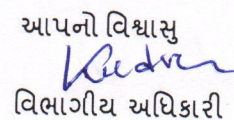 આપનો વિશ્વાસુ
વિભાગીય અધિકારી